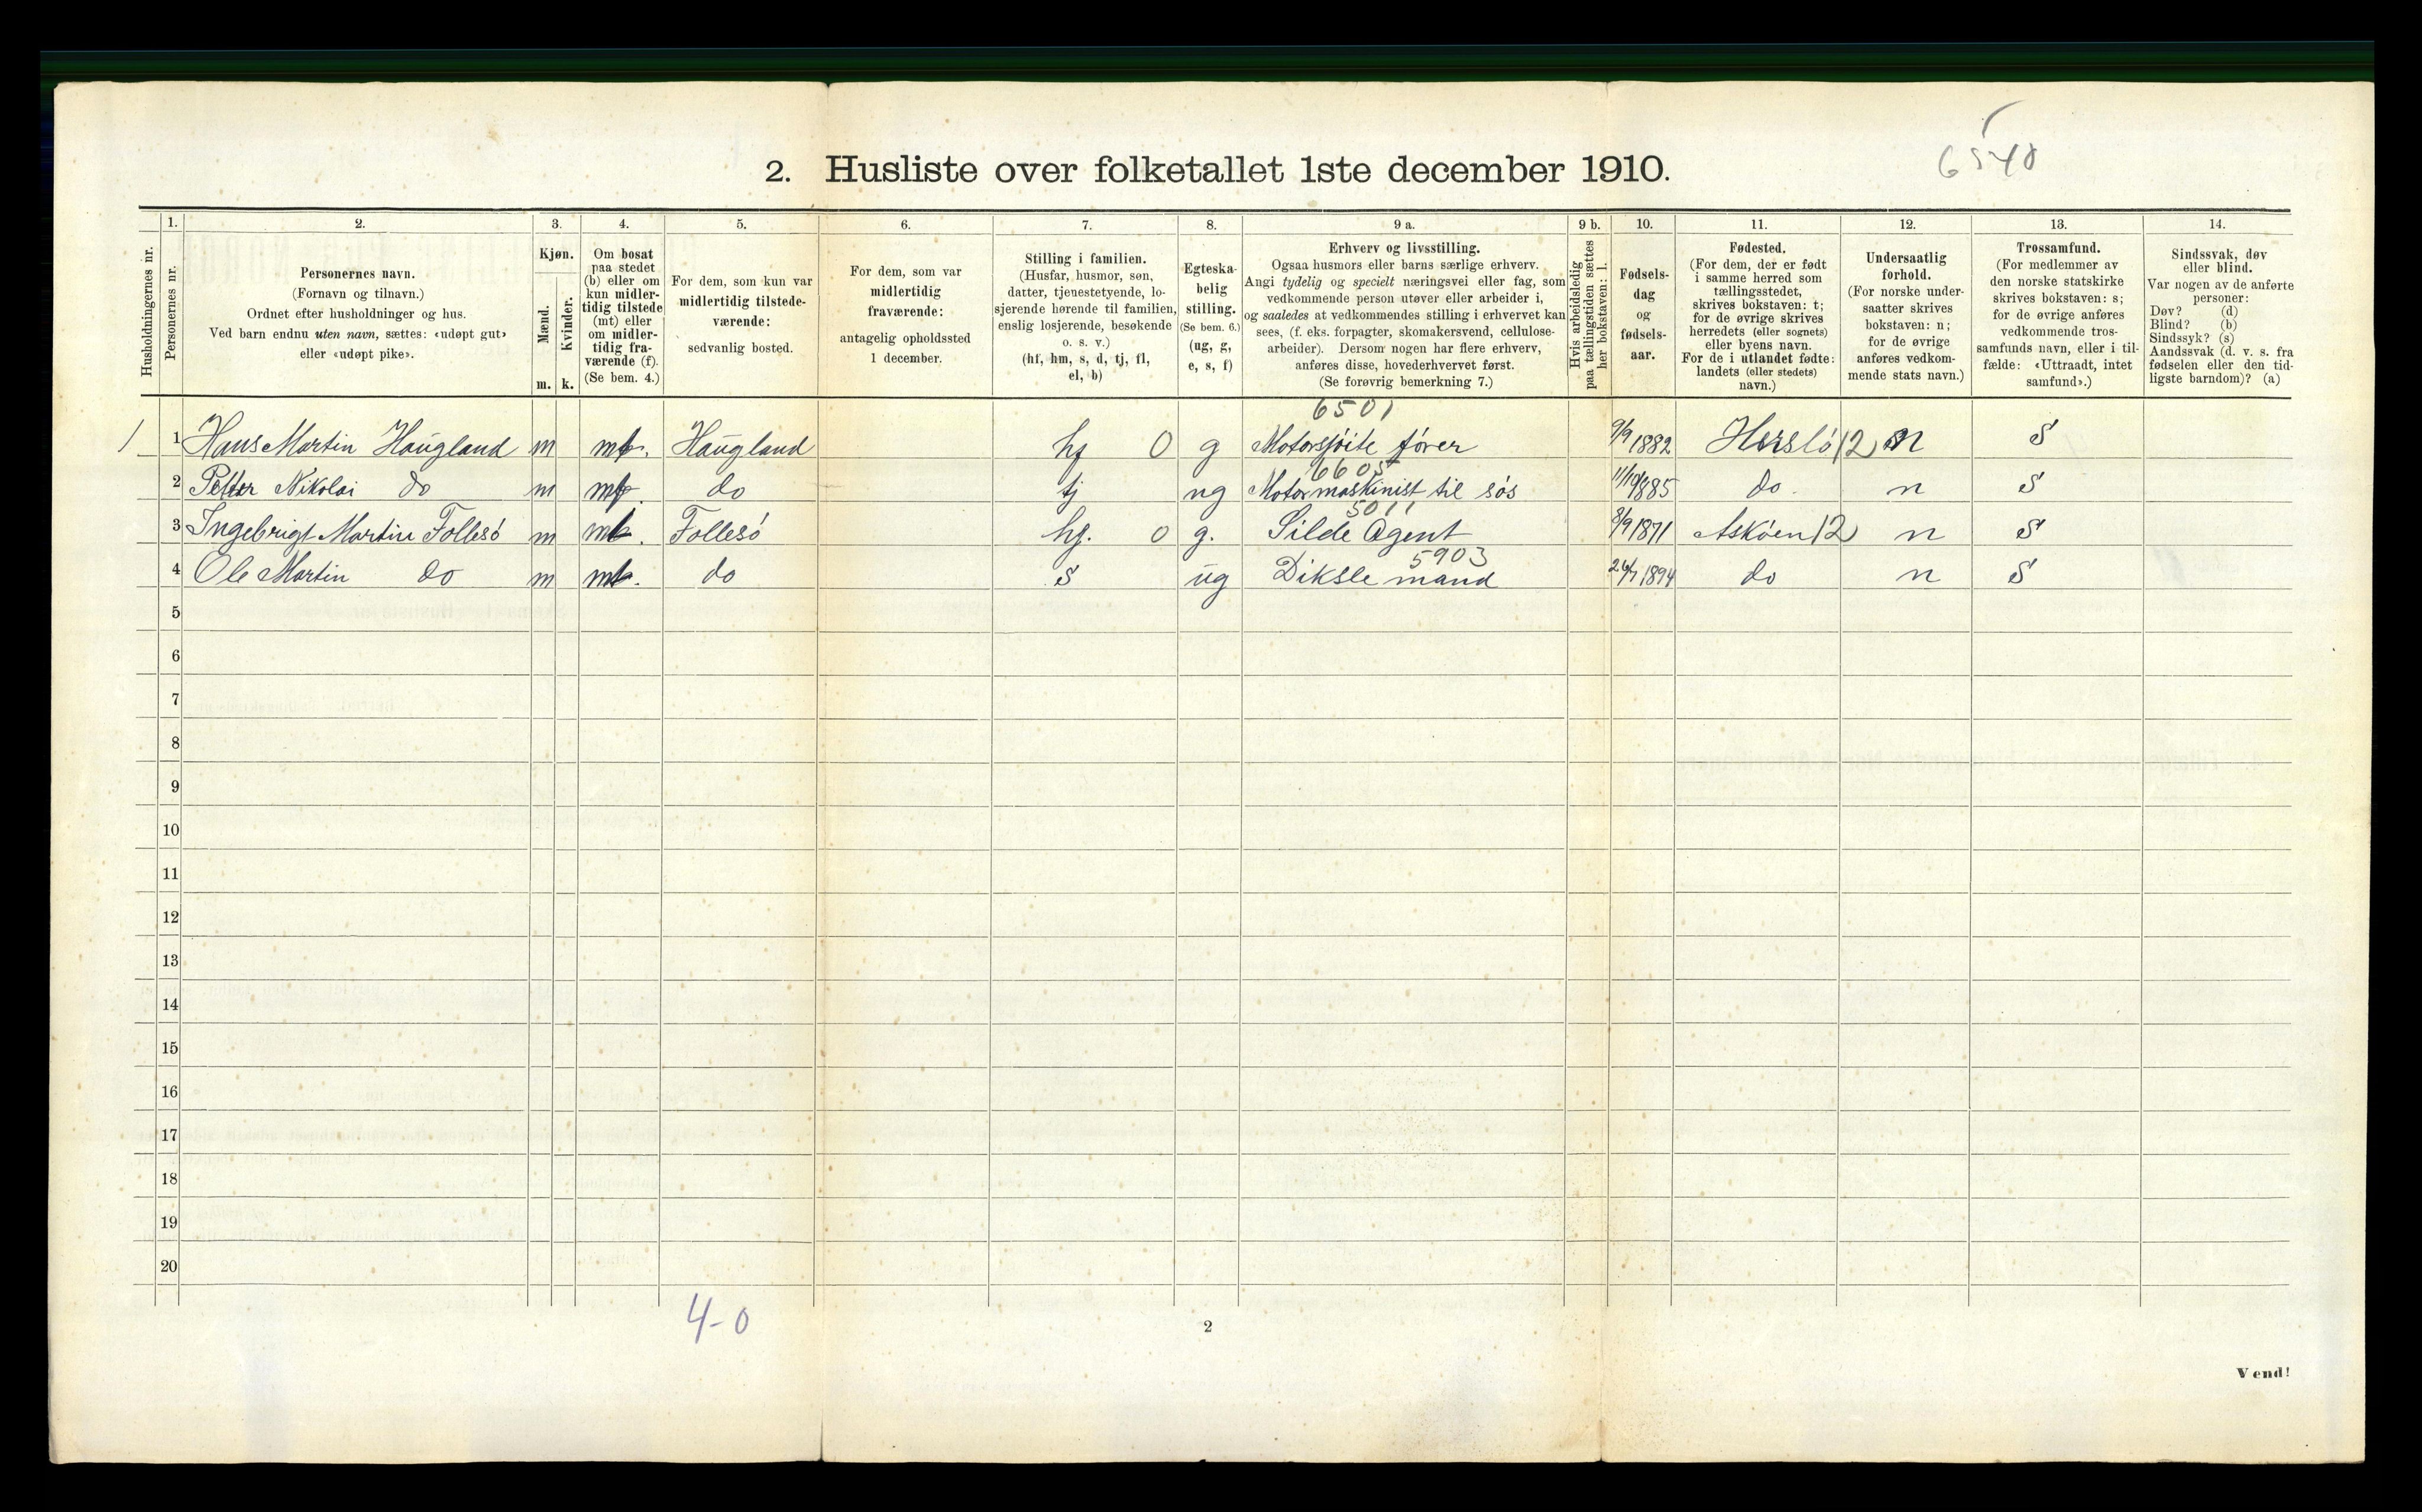 6540
2. Husliste over folketallet 1ste december 1910.
Husholdningernes nr.
1. Personernes nr.
2. Personernes navn. (Fornavn og tilnavn.) Ordnet efter husholdninger og hus. Ved barn endnu uten navn, sættes: «udøpt gut» eller «udøpt pike».
3. Kjøn. Mænd. m. Kvinder. k.
4. Om bosat paa stedet (b) eller om kun midlertidig tilstede (mt) eller om midlertidig fraværende (f). (Se bem. 4.)
5. For dem, som kun var midlertidig tilstedeværende: sedvanlig bosted.
6. For dem, som var midlertidig fraværende: antagelig opholdssted 1 december.
7. Stilling i familien. (Husfar, husmor, søn, datter, tjenestetyende, losjerende hørende til familien, enslig losjerende, besøkende o. s. v.) (hf, hm, s, d, tj, fl, el, b)
8. Egteskabelig stilling. (Se bem. 6.) (ug, g, e, s, f)
9 a. Erhverv og livsstilling. Ogsaa husmors eller barns særlige erhverv. Angi tydelig og specielt næringsvei eller fag, som vedkommende person utøver eller arbeider i, og saaledes at vedkommendes stilling i erhvervet kan sees, (f. eks. forpagter, skomakersvend, cellulosearbeider). Dersom nogen har flere erhverv, anføres disse, hovederhvervet først. (Se forøvrig bemerkning 7.)
9 b. Hvis arbeidsledig paa tællingstiden sættes her bokstaven: l.
10. Fødselsdag og fødselsaar.
11. Fødested. (For dem, der er født i samme herred som tællingsstedet, skrives bokstaven: t; for de øvrige skrives herredets (eller sognets) eller byens navn. For de i utlandet fødte: landets (eller stedets) navn.)
12. Undersaatlig forhold. (For norske undersaatter skrives bokstaven: n; for de øvrige anføres vedkommende stats navn.)
13. Trossamfund. (For medlemmer av den norske statskirke skrives bokstaven: s; for de øvrige anføres vedkommende trossamfunds navn, eller i tilfælde: «Uttraadt, intet samfund».)
14. Sindssvak, døv eller blind. Var nogen av de anførte personer: Døv? (d) Blind? (b) Sindssyk? (s) Aandssvak (d. v. s. fra fødselen eller den tidligste barndom)? (a)
6501
1 1 Hans Martin Haugland m mt. Haugland hf 0 g Motorsjöite förer 9/9 1882 Herslö 12 n S
6605
2 Petter Nikolai do m mt. do tj ug Motormaskinist til sös 11/10 1885 do. n S
5011
3 Ingebrigt Martin Follesö m mt. Follesö hf. 0 g. Silde Agent 8/9 1871 Asköen 12 n S
5903
4 Ole Martin do m mt. do S ug Diksle mand 26/7 1894 do n S
5
6
7
8
9
10
11
12
13
14
15
16
17
18
19
20
4-0
2
Vend!